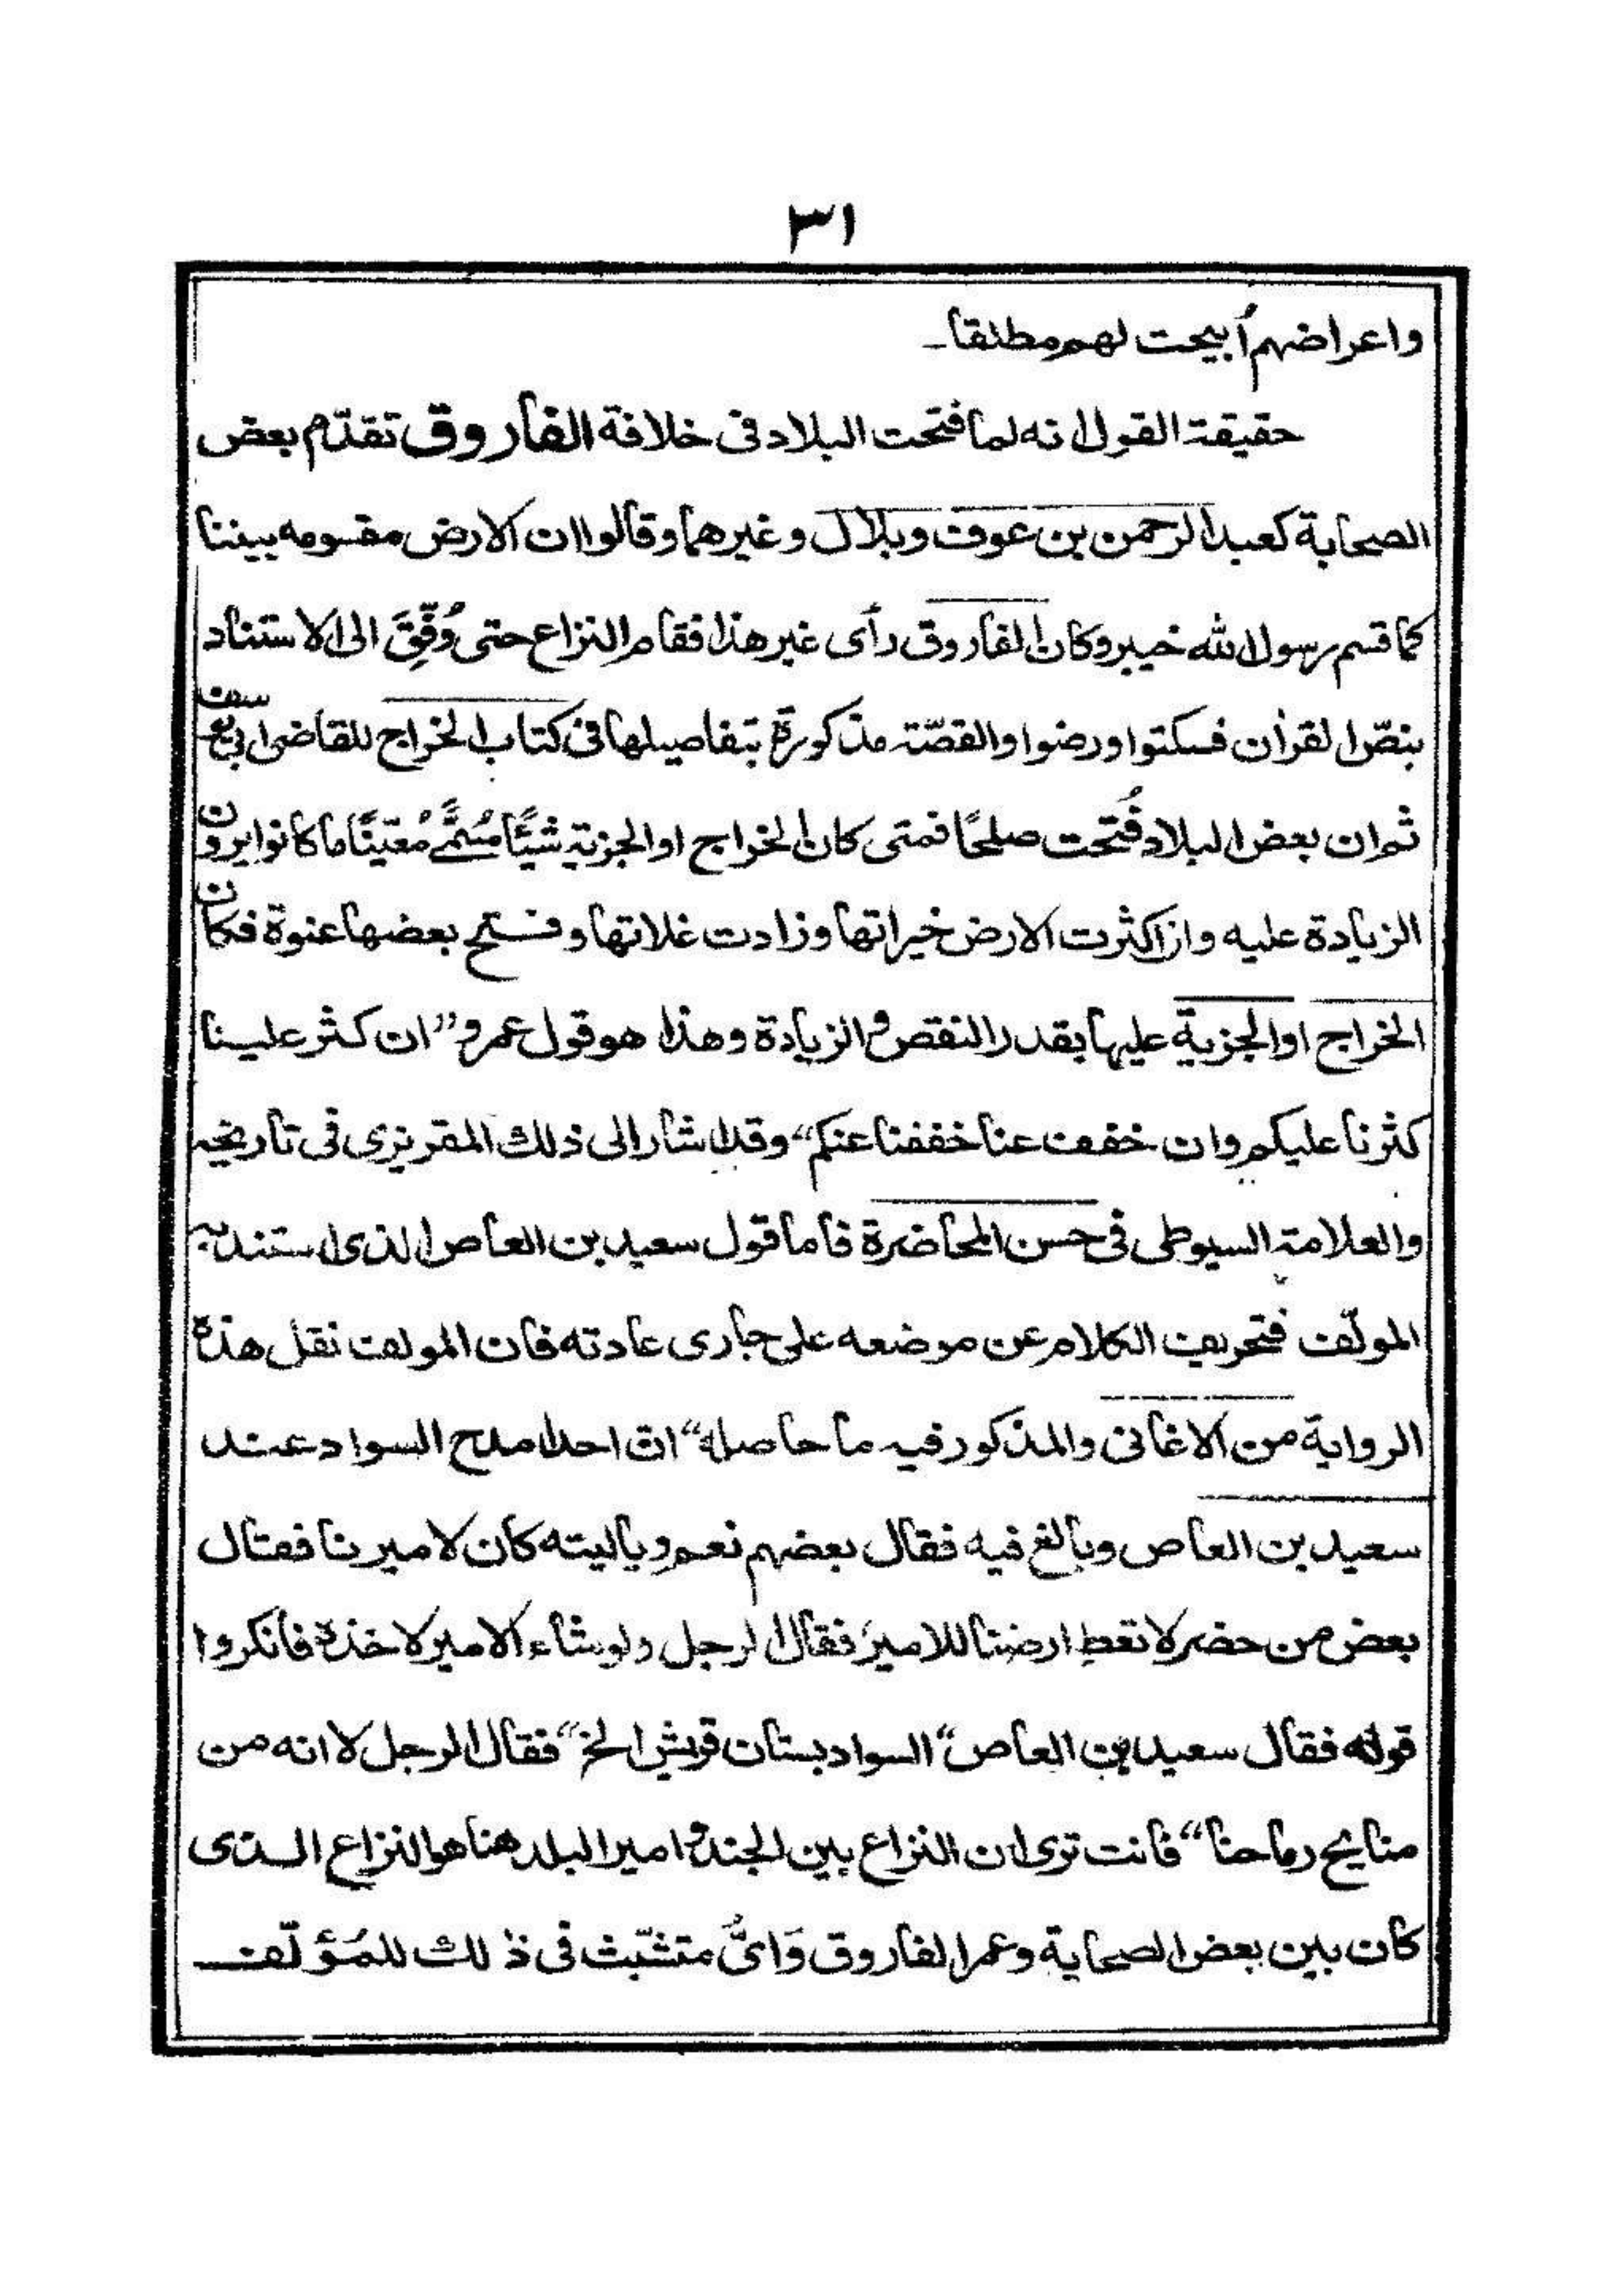 ٣١
واعراضهم أُبيحت لهم مطلقا۔
حقيقة القول انه لما فُتحت البلاد فى خلافة الفاروق تقدّم بعض
الصحابة كعبد الرحمن بن عوف وبلال وغيرهما وقالوا ان الارض مقسومه بيننا
كما قسم رسول الله خيبر وكان الفاروق رأى غير هذا فقام النزاع حتى وُفِّقَ الى الاستناد
بنصّ القرأن فسكتوا ورضوا والقصّة مذكورة بتفاصيلها فى كتاب الخراج للقاضى ابى يوسف
ثم ان بعض البلاد فُتحت صلحًا فمتى كان الخراج او الجزية شيئًا مُسمًّى مُعيّنًا ما كانوا يرون
الزيادة عليه وان اكثرت الارض خيراتها وزادت غلاتها وفتح بعضها عنوة فكان
الخراج او الجزية عليها بقدر النقص والزيادة وهذا هو قول عمرو ”ان كثر علينا
كثرنا عليكم وان خفف عنا خففنا عنكم“ وقد اشار الى ذلك المقريزى فى تاريخه
والعلامة السيوطى فى حسن المحاضرة فاما قول سعيد بن العاص الذى استند به
المولّف فتحريف الكلام عن موضعه على جارى عادته فان المولف نقل هذه
الرواية من الاغانى والمذكور فيه ما حاصله “ان احدا مدح السواد عند
سعيد بن العاص وبالغ فيه فقال بعضهم نعم وياليته كان لاميرنا فقال
بعض من حضر لا تعط ارضنا للامير فقال الرجل ولو شاء الامير لاخذه فانكروا
قوله فقال سعيد بن العاص “السواد بستان قريش الخ“ فقال الرجل لا انه من
منايح رماحنا“ فانت ترى ان النزاع بين الجند و امير البلد هنا هو النزاع الذى
كان بين بعض الصحابة وعمر الفاروق وَاىُّ متشبّث فى ذلك للمُؤلّف